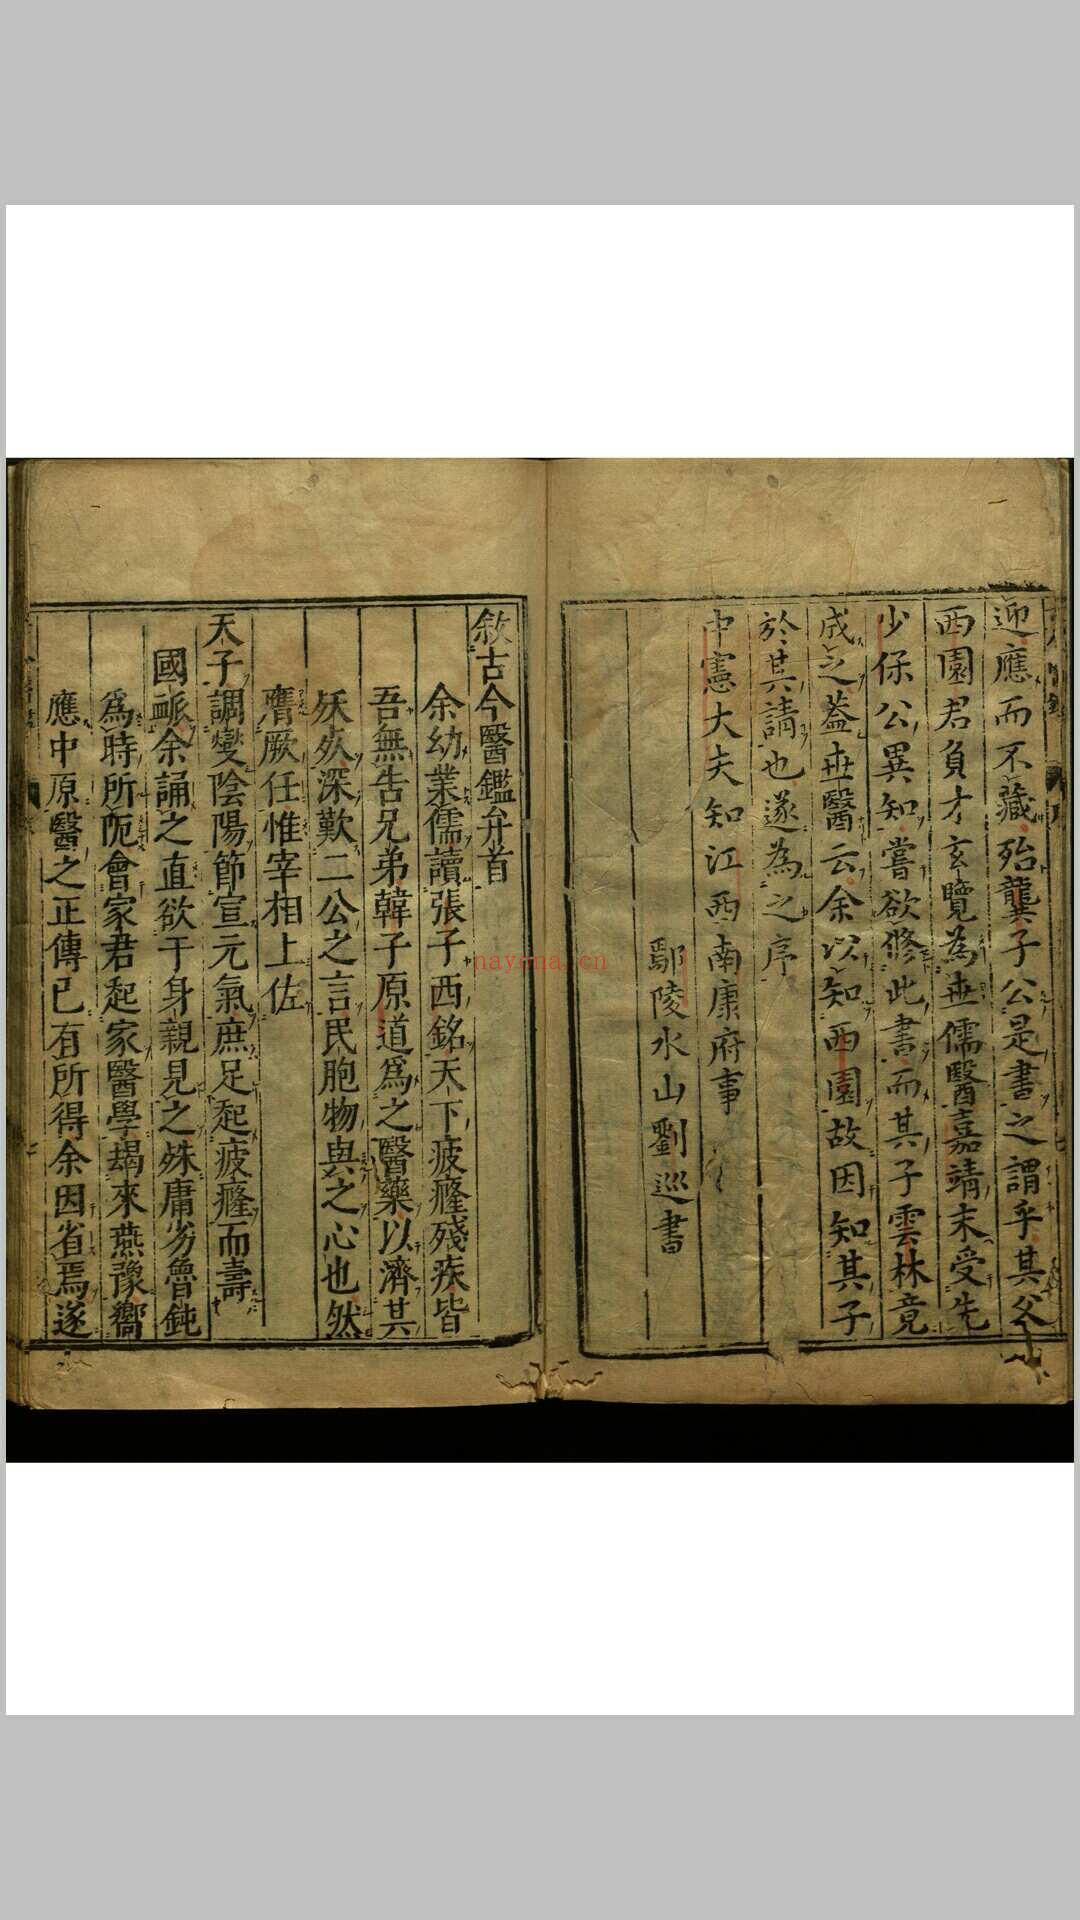 迎應而不藏殆龔子公是書之謂乎其父
西園君負才玄覽為世儒醫嘉靖末受先
少保公異知嘗欲修此書而其子雲林竟
成之蓋世醫云余以知西園故因知其子
於其請也遂為之序
中憲大夫知江西南康府事
鄢陵水山劉巡書
敘古今醫鑑弁首
余幼業儒讀張子西銘天下疲癃殘疾皆
吾無告兄弟韓子原道爲之醫藥以濟其
殀歿深歎二公之言民胞物與之心也然
膺厥任惟宰相上佐
天子調燮陰陽節宣元氣庶足起疲癃而壽
國脈余誦之直欲于身親見之殊庸劣魯鈍
爲時所阨會家君起家醫學朅來燕豫嚮
應中原醫之正傳已有所得余因省焉遂
nayona.cn